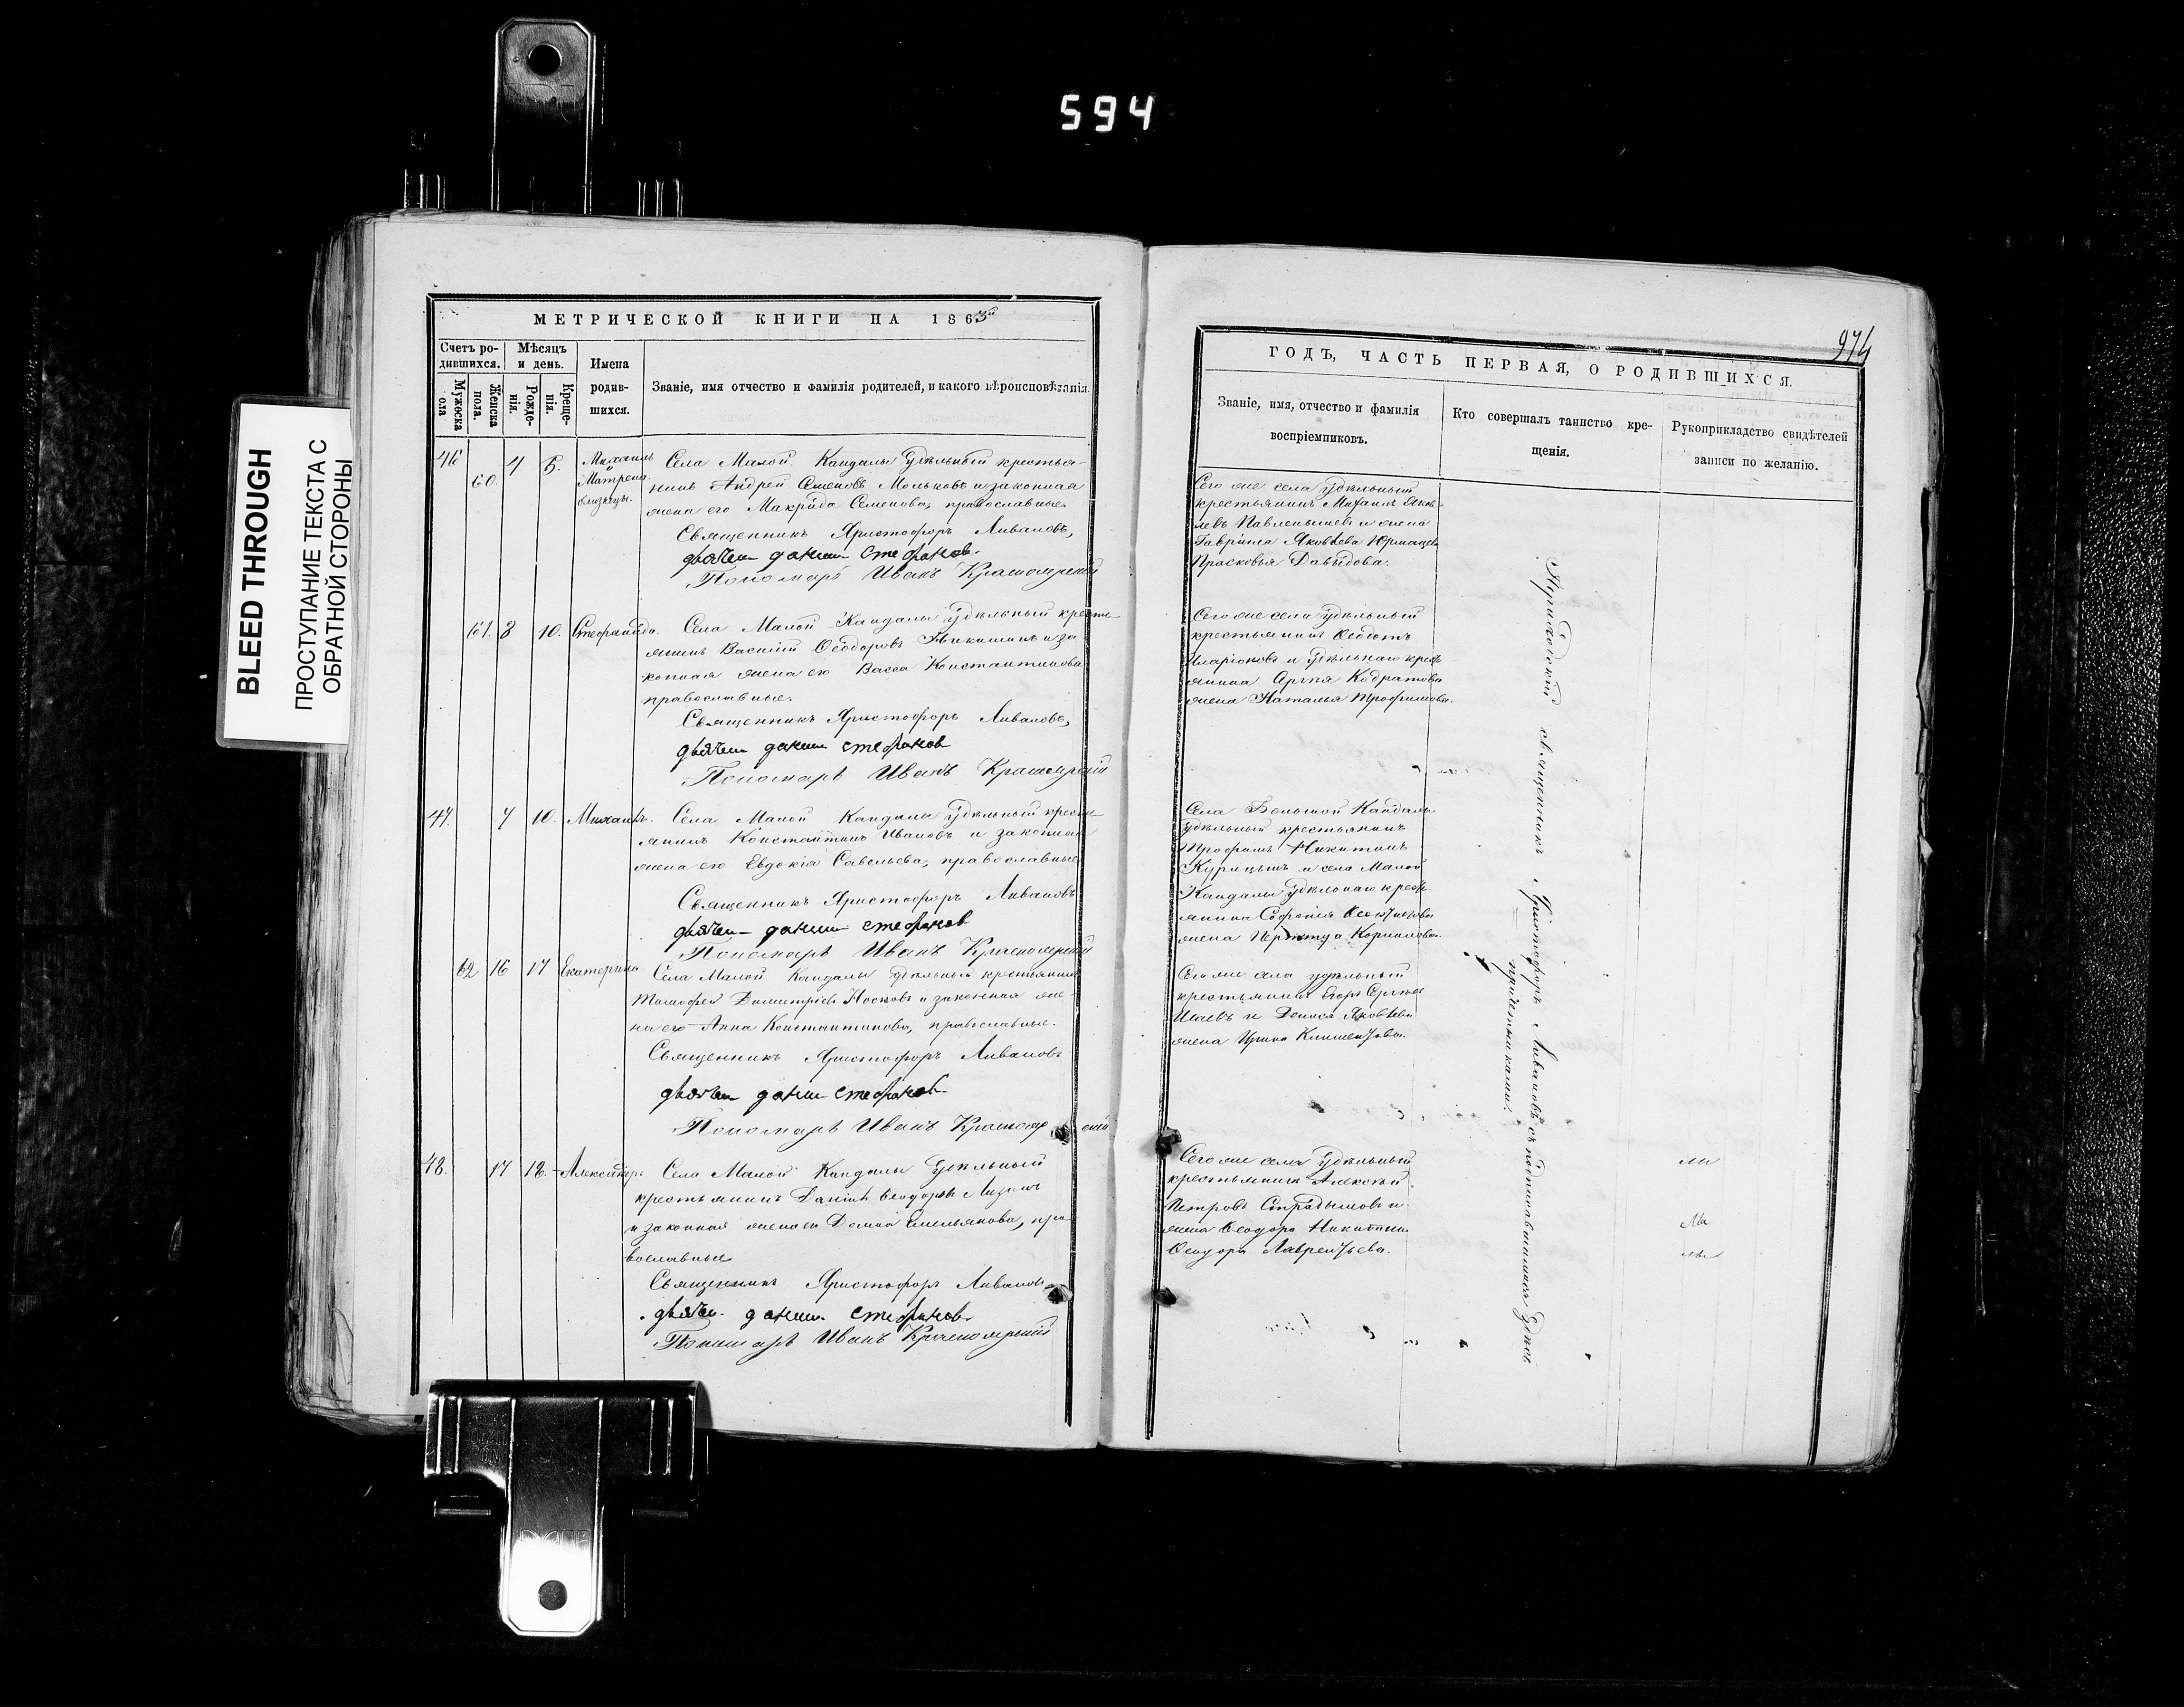 594
BLEED THROUGH
ПРОСТУПАНИЕ ТЕКСТА С
ОБРАТНОЙ СТОРОНЫ
МЕТРИЧЕСКОЙ КНИГИ НА 1863й
Счетъ ро-
дившихся.
Мѣсяцъ
и день.
Мужеска
пола
Женска
пола.
Рожде-
нія.
Креще-
нія.
Имена
родив-
шихся.
Званіе, имя отчество и фамилія родителей, и какого вѣроисповѣданія.
46 60. 4 5. Михаилъ
и
Матрена
близнецы.
Села Малой Кандалы Удѣльный крестья-
нинъ Андрей Семеновъ Мольковъ и законная
жена его Макрида Семенова, православные.
Священникъ Христофоръ Ливановъ,
дьячекъ Данилъ Стефановъ.
Пономарь Иванъ
61. 8 10. Стефанида.
Села Малой Кандалы Удѣльный кресть-
янинъ Василій Ѳеодоровъ и за
конная жена его Васса Константинова
православные.
Священникъ Христофоръ Ливановъ,
дьячекъ Данилъ Стефановъ
Пономарь Иванъ
47. 7 10. Михаилъ.
Села Малой Кандалы Удѣльный кресть-
янинъ Константинъ Ивановъ и законная
жена его Евдокія Савельева, православные
Священникъ Христофоръ Ливановъ
дьячекъ Данилъ Стефановъ
Пономарь Иванъ
62 16 17 Екатерина
Села Малой Кандалы Удѣльный крестьянинъ
Тимофей Димитріевъ Носковъ и законная же-
на его Анна Константинова, православные.
Священникъ Христофоръ Ливановъ
дьячекъ Данилъ Стефановъ.
Пономарь Иванъ
48. 17 18. Александръ.
Села Малой Кандалы Удѣльный
крестьянинъ Даніилъ Ѳеодоровъ
и законная жена его Домна Емельянова, пра
вославные
Священникъ Христофоръ Ливановъ
дьячекъ Данилъ Стефановъ.
Пономарь Иванъ
974
ГОДЪ, ЧАСТЬ ПЕРВАЯ, О РОДИВШИХСЯ.
Званіе, имя, отчество и фамилія
воспріемниковъ.
Кто совершалъ таинство кре-
щенія.
Рукоприкладство свидѣтелей
записи по желанію.
Того же села Удѣльный
крестьянинъ Михаилъ Яков-
левъ и жена
Гавріила Яковлева
Прасковья Давыдова.
Того же села Удѣльный
крестьянинъ Ѳедотъ
Иларіоновъ и Удѣльнаго крест-
янина Сергѣя Кодратова
жена Наталья Трофимова.
Села Большой Кандалы
Удѣльный крестьянинъ
Трофимъ Никитинъ
Курицынъ и села Малой
Кандалы Удѣльнаго крест-
янина Софона
жена Корнилова.
Того же села удѣльный
крестьянинъ Егоръ Сергѣевъ
Исаевъ и Дениса Яковлева
жена Ирина Климентьева.
Того же села Удѣльный
крестьянинъ Алексѣй
Петровъ и
жена Ѳеодора Никитина
Ѳеодора Лаврентьева.
Приходскій священникъ Христофоръ Ливановъ съ подписавшимися здѣсь
причетниками.